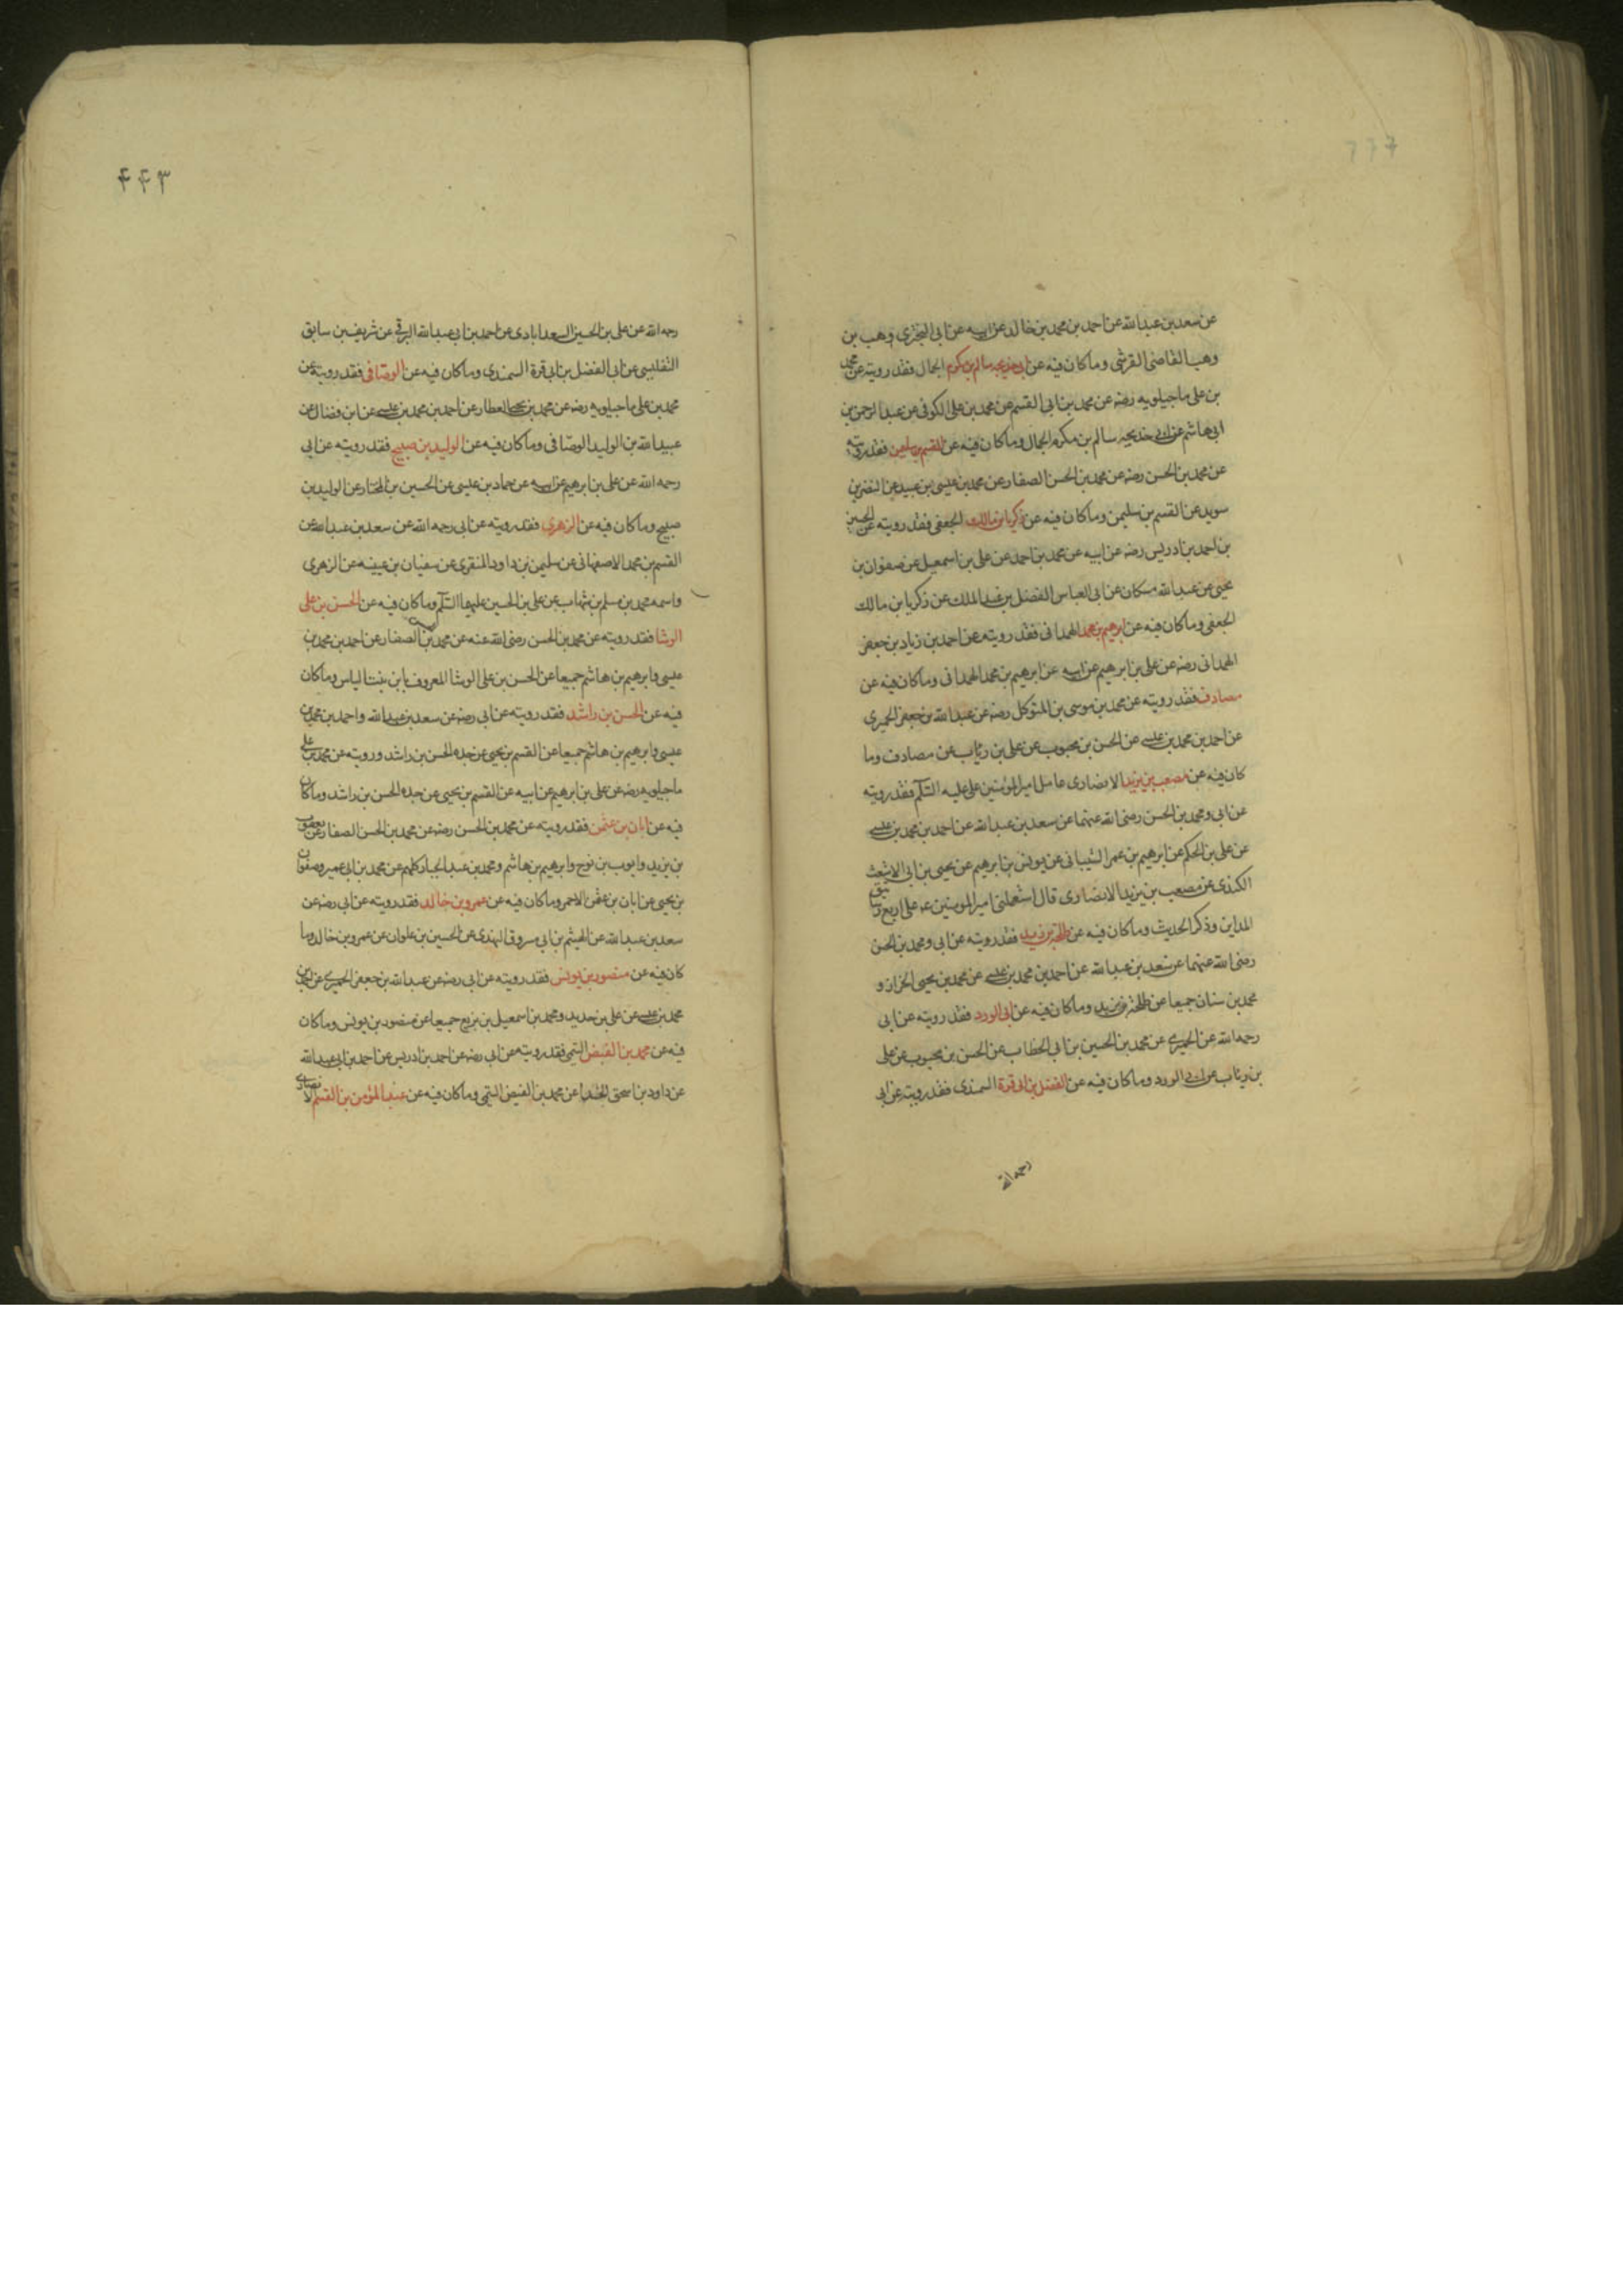 عن سعد بن عبدالله عن احمد بن محمد بن خالد عن ابيه عن ابي البختري وهب بن
وهب القاضي القرشي وماكان فيه عن ابي خديجه سالم بن مكرم الجمال فقد رويته عن محمد
بن علي ماجيلويه رضه عن محمد بن ابي القسم عن محمد بن علي الكوفي عن عبدالرحمن بن
ابي هاشم عن ابي خديجه سالم بن مكرم الجمال وماكان فيه عن القسم بن سليمن فقد رويته
عن محمد بن الحسن رضه عن محمد بن الحسن الصفار عن محمد بن عيسى بن عبيد عن النضر بن
سويد عن القسم بن سليمن وماكان فيه عن زكريا بن مالك الجعفي فقد رويته عن الحسين
بن احمد بن ادريس رضه عن ابيه عن محمد بن احمد عن علي بن اسمعيل عن صفوان بن
يحيى عن عبدالله مسكان عن ابي العباس الفضل بن عبدالملك عن زكريا بن مالك
الجعفي وماكان فيه عن ابرهيم بن محمد الهمداني فقد رويته عن احمد بن زياد بن جعفر
الهمداني رضه عن علي بن ابرهيم عن ابيه عن ابرهيم بن محمد الهمداني وماكان فيه عن
مصادف فقد رويته عن محمد بن موسى بن المتوكل رضه عن عبدالله بن جعفر الحميري
عن احمد بن محمد بن عيسى عن الحسن بن محبوب عن علي بن رئاب عن مصادف وما
كان فيه عن مصعب بن يزيد الانصاري عامل اميرالمؤمنين علي عليه السلم فقد رويته
عن ابي ومحمد بن الحسن رضي الله عنهما عن سعد بن عبدالله عن احمد بن محمد بن عيسى
عن علي بن الحكم عن ابرهيم بن عمر الشيباني عن يونس بن ابرهيم عن يحيى بن ابي الاشعث
الكندي عن مصعب بن يزيد الانصاري قال استعملني اميرالمومنين عه علي اربع رساتيق
المداين وذكر الحديث وماكان فيه عن طلحة بن زيد فقد رويته عن ابي ومحمد بن الحسن
رضي الله عنهما عن سعد بن عبدالله عن احمد بن محمد بن عيسى عن محمد بن يحيى الخزاز و
محمد بن سنان جميعا عن طلحة بن زيد وماكان فيه عن ابي الورد فقد رويته عن ابي
رحمه الله عن الحميري عن محمد بن الحسين بن ابي الخطاب عن الحسن بن محبوب عن علي
بن رئاب عن ابي الورد وماكان فيه عن الفضل بن ابي قرة السمندي فقد رويته عن ابي
رحمه الله
٤٤٣
رحمه الله عن علي بن الحسين السعدابادي عن احمد بن ابي عبدالله البرقي عن شريف بن سابق
التفليسي عن ابي الفضل بن ابي قرة السمندي وماكان فيه عن الوصافي فقد رويته عن
محمد بن علي ماجيلويه رضه عن محمد بن يحيى العطار عن احمد بن محمد بن عيسى عن ابن فضال عن
عبيدالله بن الوليد الوصافي وماكان فيه عن الوليد بن صبيح فقد رويته عن ابي
رحمه الله عن علي بن ابرهيم عن ابيه عن حماد بن عيسى عن الحسين بن المختار عن الوليد بن
صبيح وماكان فيه عن الزهري فقد رويته عن ابي رحمه الله عن سعد بن عبدالله عن
القسم بن محمد الاصفهاني عن سليمن بن داود المنقري عن سفيان بن عيينه عن الزهري
واسمه محمد بن مسلم بن شهاب عن علي بن الحسين عليهما السلم وماكان فيه عن الحسن بن علي
الوشا فقد رويته عن محمد بن الحسن رضي الله عنه عن محمد بن الصفار عن احمد بن محمد بن
عيسى وابرهيم بن هاشم جميعا عن الحسن بن علي الوشا المعروف بابن بنت الياس وماكان
فيه عن الحسن بن راشد فقد رويته عن ابي رضه عن سعد بن عبدالله واحمد بن محمد بن
عيسى وابرهيم بن هاشم جميعا عن القسم بن يحيى عن جده الحسن بن راشد ورويته عن محمد بن علي
ماجيلويه رضه عن علي بن ابرهيم عن ابيه عن القسم بن يحيى عن جده الحسن بن راشد وماكان
فيه عن ابان بن عثمن فقد رويته عن محمد بن الحسن رضه عن محمد بن الحسن الصفار عن يعقوب
بن يزيد وايوب بن نوح وابرهيم بن هاشم ومحمد بن عبدالجبار كلهم عن محمد بن ابي عمير وصفوان
بن يحيى عن ابان بن عثمن الاحمر وماكان فيه عن عمرو بن خالد فقد رويته عن ابي رضه عن
سعد بن عبدالله عن الهيثم بن ابي مسروق النهدي عن الحسين بن علوان عن عمرو بن خالد وما
كان فيه عن منصور بن يونس فقد رويته عن ابي رضه عن عبدالله بن جعفر الحميري عن احمد بن
محمد بن عيسى عن علي بن حديد ومحمد بن اسمعيل بن بزيع جميعا عن منصور بن يونس وماكان
فيه عن محمد بن الفيض التيمي فقد رويته عن ابي رضه عن احمد بن ادريس عن احمد بن ابي عبدالله
عن داود بن اسحق الحذا عن محمد بن الفيض التيمي وماكان فيه عن عبدالمؤمن بن القسم الانصاري